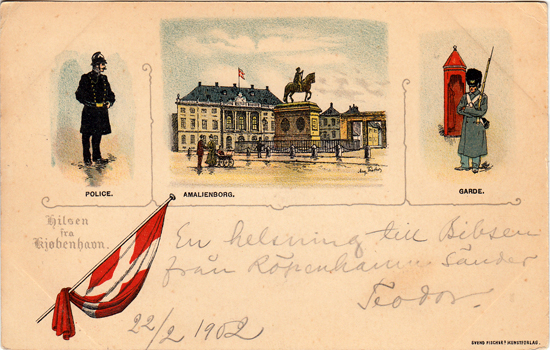 POLICE.
AMALIENBORG.
GARDE.
Hilsen
fra
Kjøbenhavn.
En helsning till Bibsen
från Köpenhamn sänder
Teodor.
22/2 1902
SVEND FISCHER? KUNSTFORLAG.